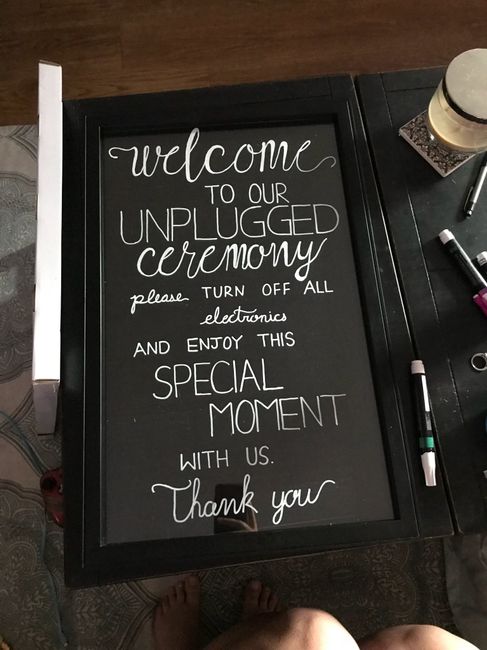 welcome
TO OUR
UNPLUGGED
ceremony
please TURN OFF ALL
electronics
AND ENJOY THIS
SPECIAL
MOMENT
WITH US.
Thank you